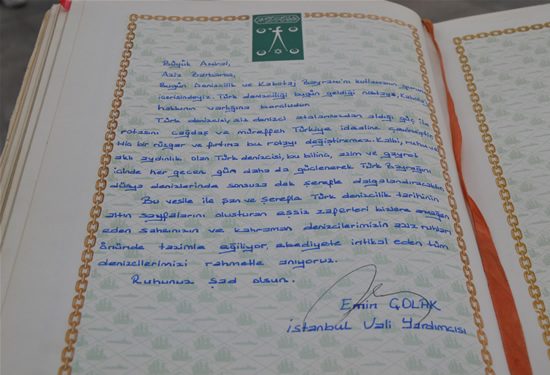 Büyük Amiral,
Aziz Barbaros,
Bugün Denizcilik ve Kabotaj Bayramı'nı kutlamanın gururu
içerisindeyiz. Türk denizciliği bugün geldiği noktayı, Kabotaj
hakkının varlığına borçludur.
Türk denizcisi, siz denizci atalarımızdan aldığı güç ile
rotasını çağdaş ve müreffeh Türkiye idealine çevirmiştir.
Hiç bir rüzgar ve fırtına bu rotayı değiştiremez. Kalbi, ruhu ve
aklı aydınlık olan Türk denizcisi, bu bilinç, azim ve gayret
içinde her geçen gün daha da güçlenerek Türk Bayrağını
dünya denizlerinde sonsuza dek şerefle dalgalandıracaktır.
Bu vesile ile şan ve şerefle Türk denizcilik tarihinin
altın sayfalarını oluşturan eşsiz zaferleri bizlere armağan
eden şahsınızın ve kahraman denizcilerimizin aziz ruhları
önünde tazimle eğiliyor, ebediyete intikal eden tüm
denizcilerimizi rahmetle anıyoruz.
Ruhunuz şad olsun.
Emin GOLAK
İstanbul Vali Yardımcısı